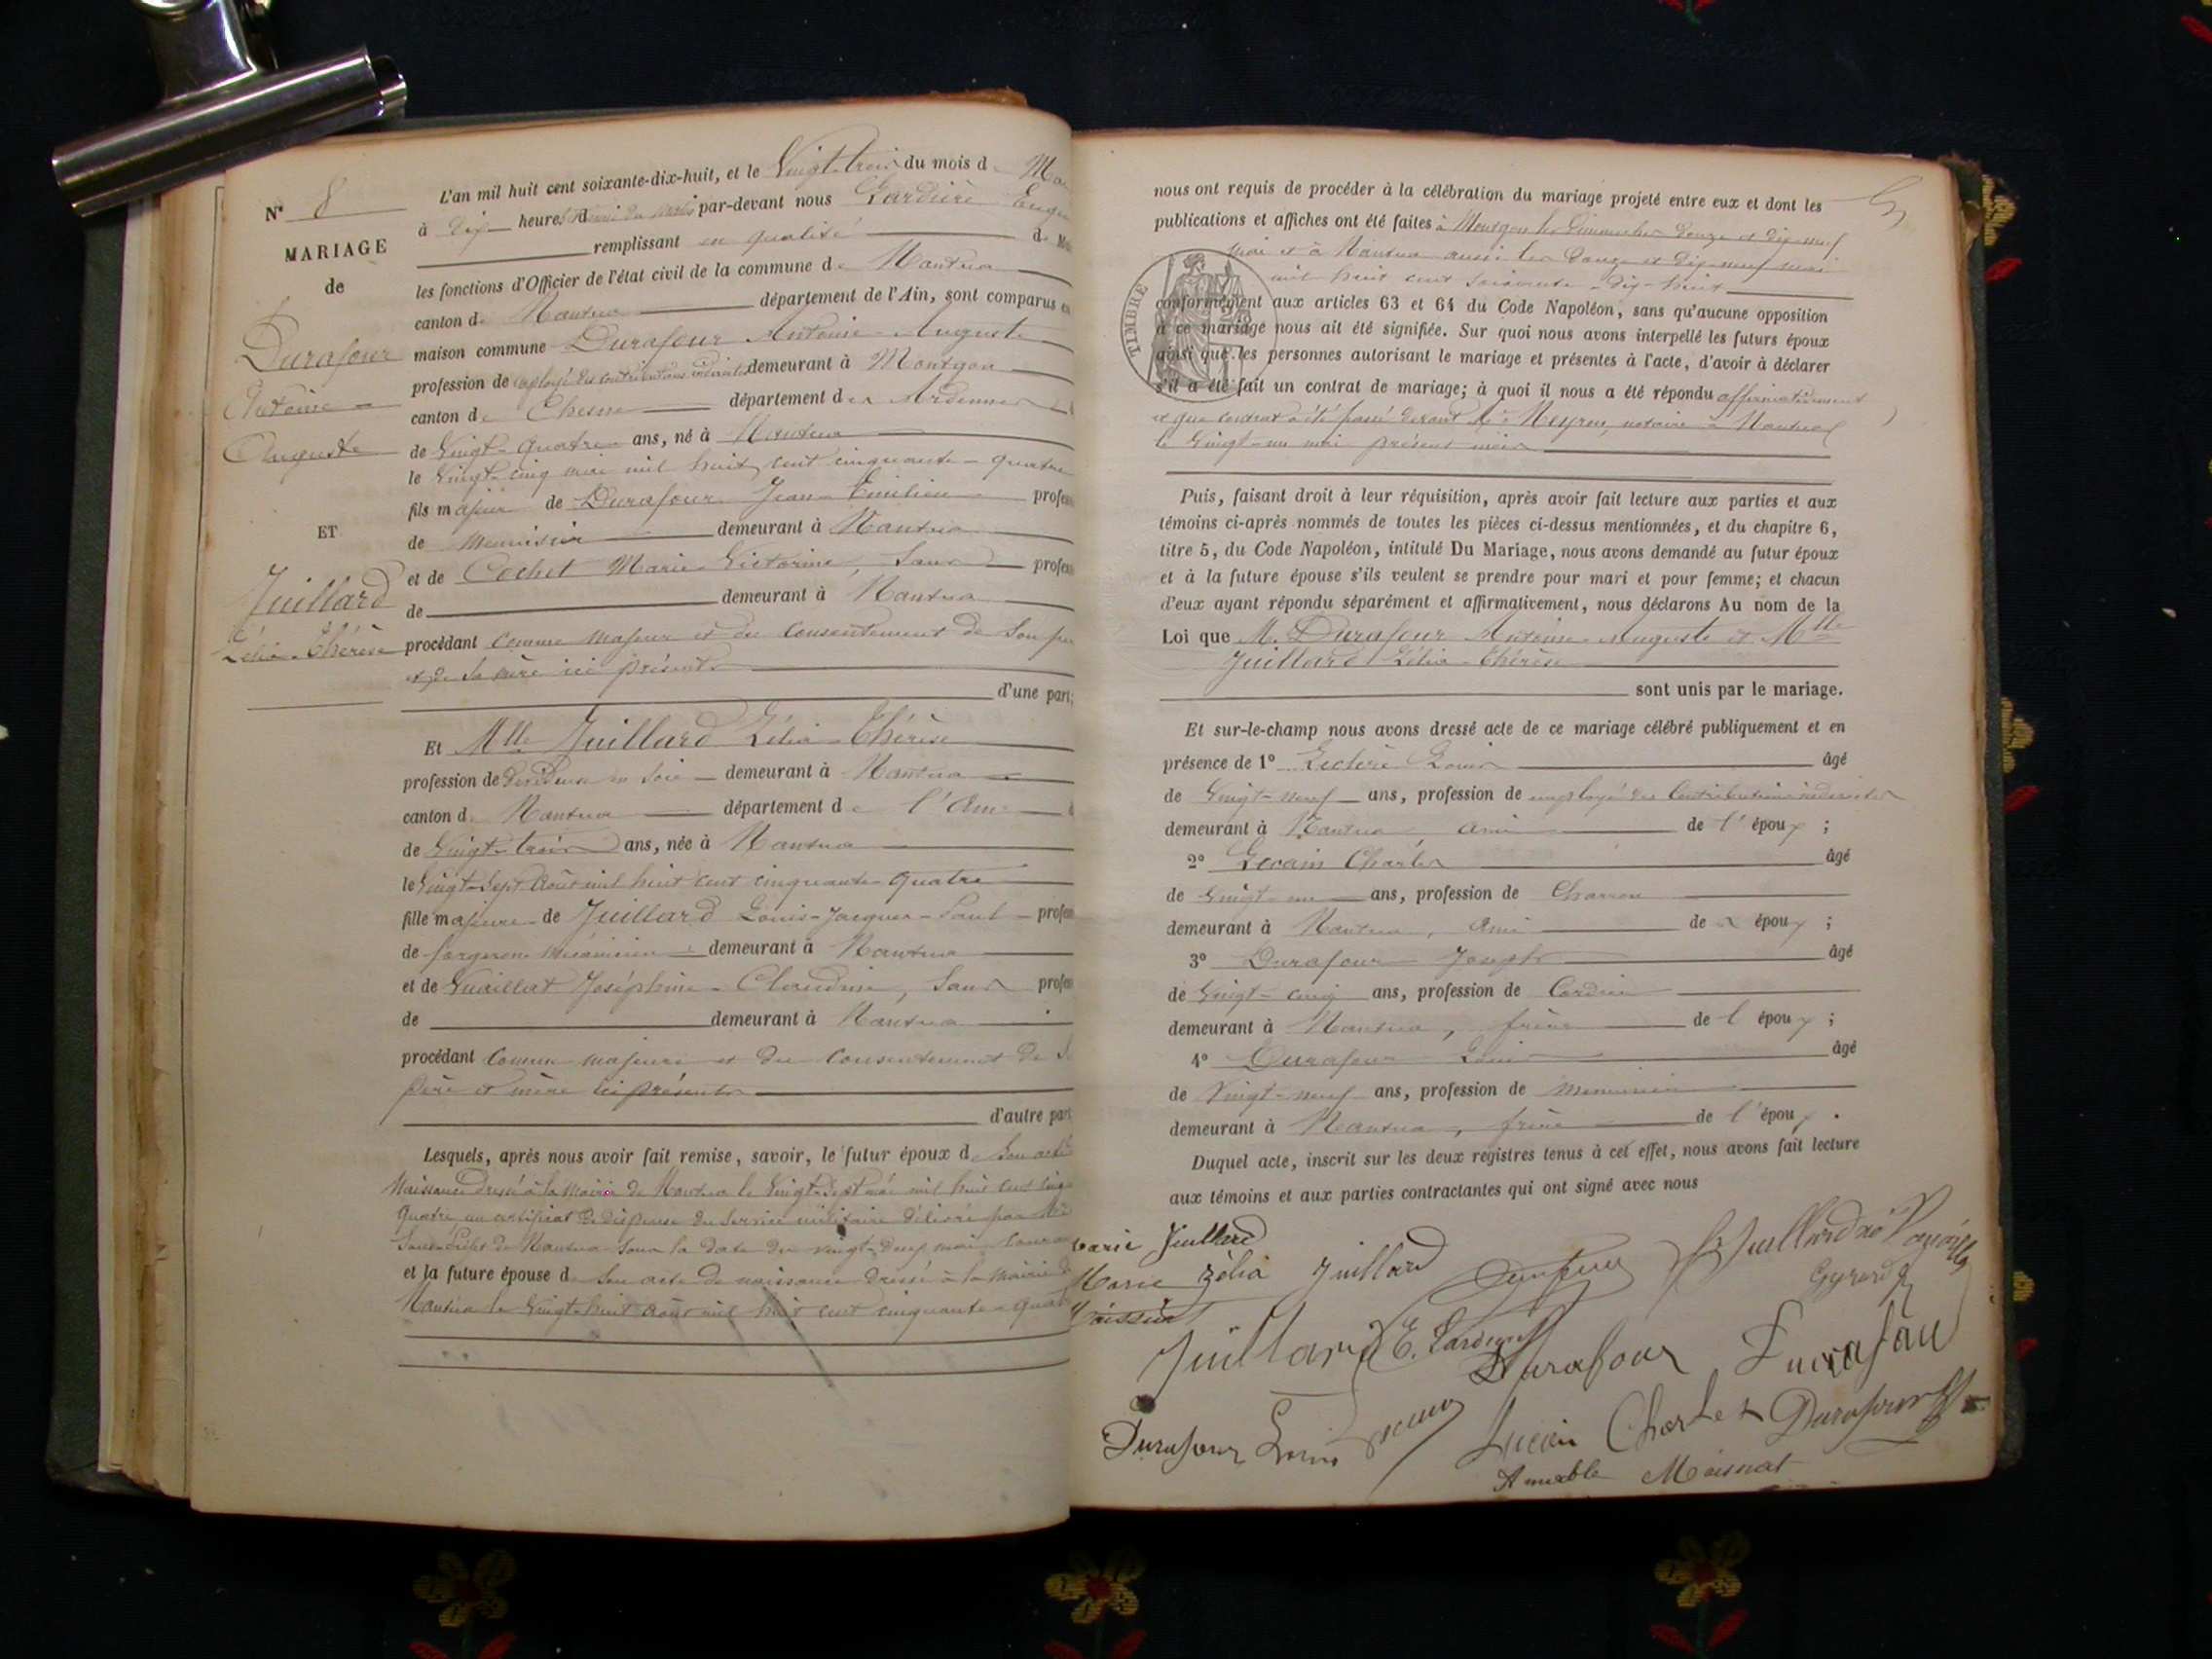 N° 8
MARIAGE
de
Durafour
Antoine
Auguste
ET
Juillard
Zélia-Thérèse
L'an mil huit cent soixante-dix-huit, et le Vingt-trois du mois d
à dix heures du par-devant nous
remplissant en qualité d
les fonctions d'Officier de l'état civil de la commune de Nantua
canton de Nantua département de l'Ain, sont comparus
maison commune Durafour Antoine-Auguste
profession de employé des contributions indirectes demeurant à Montgon
canton de Chesne département des Ardennes
de Vingt-quatre ans, né à Nantua
le Vingt-cinq mai mil huit cent cinquante-quatre
fils majeur de Durafour Jean-Emilien
de menuisier demeurant à Nantua
et de Cochet Marie Victorine, Sans
de demeurant à Nantua
procédant comme majeur et du consentement de Son
et de Sa mère ici présents
d'une part;
Et Mlle Juillard Zélia-Thérèse
profession de Dévideuse en Soie demeurant à Nantua
canton de Nantua département de l'Ain
de Vingt-trois ans, née à Nantua
le Vingt-Sept Août mil huit cent cinquante-quatre
fille majeure de Juillard Louis-Jacques-Paul
de forgeron mécanicien demeurant à Nantua
et de Vuaillat Joséphine-Claudine, Sans
de demeurant à Nantua
procédant comme majeure et du consentement de
père et mère ici présents
d'autre part
Lesquels, après nous avoir fait remise, savoir, le futur époux de Son acte
Naissance dressé à la Mairie de Nantua le Vingt-Sept mai mil huit cent
quatre un certificat de dispense du Service militaire délivré par
Sous-Préfet de Nantua sous la date du vingt-deux mai
et la future épouse de Son acte de naissance dressé à la Mairie
Nantua le Vingt-huit Août mil huit cent cinquante-
nous ont requis de procéder à la célébration du mariage projeté entre eux et dont les
publications et affiches ont été faites à Montgon les Dimanches Douze et Dix-neuf
mai et à Nantua aussi les Douze et Dix-neuf mai
mil huit cent soixante-dix-huit
TIMBRE
conformément aux articles 63 et 64 du Code Napoléon, sans qu'aucune opposition
à ce mariage nous ait été signifiée. Sur quoi nous avons interpellé les futurs époux
ainsi que les personnes autorisant le mariage et présentes à l'acte, d'avoir à déclarer
s'il a été fait un contrat de mariage; à quoi il nous a été répondu affirmativement
et que contrat a été passé devant Me Neyron, notaire à Nantua
le Vingt-un mai présent mois
Puis, faisant droit à leur réquisition, après avoir fait lecture aux parties et aux
témoins ci-après nommés de toutes les pièces ci-dessus mentionnées, et du chapitre 6,
titre 5, du Code Napoléon, intitulé Du Mariage, nous avons demandé au futur époux
et à la future épouse s'ils veulent se prendre pour mari et pour femme; et chacun
d'eux ayant répondu séparément et affirmativement, nous déclarons Au nom de la
Loi que M. Durafour Antoine-Auguste et Mlle
Juillard Zélia-Thérèse
sont unis par le mariage.
Et sur-le-champ nous avons dressé acte de ce mariage célébré publiquement et en
présence de 1° Louis âgé
de Vingt-neuf ans, profession de employé des Contributions indirectes
demeurant à Nantua, ami de l'époux;
2° Charles âgé
de Vingt-un ans, profession de Charron
demeurant à Nantua, Ami de époux;
3° Durafour Joseph âgé
de Vingt-cinq ans, profession de
demeurant à Nantua, frère de l'époux;
4° Durafour Louis âgé
de Vingt-neuf ans, profession de menuisier
demeurant à Nantua, frère de l'époux.
Duquel acte, inscrit sur les deux registres tenus à cet effet, nous avons fait lecture
aux témoins et aux parties contractantes qui ont signé avec nous
Marie Juillard
Marie Zélia Juillard
Juillard
Durafour
Durafour Louis
Charles Durafour
Moisnat